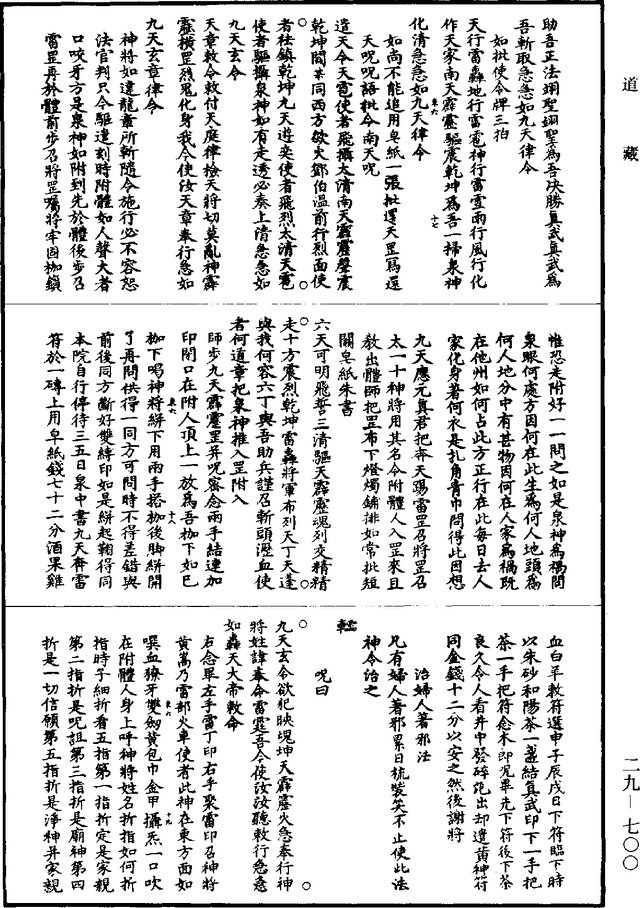 助吾正法翊聖翊聖為吾決勝真武真武為
吾斬取急急如九天律令
如批使令牌三拍
天行雷轟地行雷雹神行雷雲雨行風行化
作天家南天霹靂驅震乾坤為吾一掃泉神
化清急急如九天律令
如尚不能追用皂紙一張批還天罡寫還
天呪呪語批令南天呪
遣天令天雹使者飛攝太清南天霹靂聲震
乾坤間業同西方欲火鄧伯溫前行烈面使
者社鎮乾坤九天遊奕使者飛烈太清天雹
使者驅攝泉神如有走透必奏上清急急如
九天玄令
天章敕令敕付天庭律檢天將切莫亂神霹
靂橫罡烈鬼化身我今使汝天章奉行急如
九天玄章律令
神將如違龍章所斬隨令施行必不容恕
法官判只令驅還刻時附體如人聲大者
口咬牙方是泉神如附到先於體後步召
雷罡再於體前步召將罡囑將牢固枷鎖
惟恐走附好一一問之如是泉神為禍問
泉眼何處方因何在此生為何人地頭為
何人地分中有甚物因何在人家為禍既
在他州如何占此方正行在此每日去人
家化身著何衣是扎角青巾問得此因想
九天應元真君把斉天踢雷罡召將罡召
太一十神將用其名令附體人入罡來且
敎出體師把罡布下燈燭鋪排如常批短
關皂紙朱書
六天可明飛誓三清驅天霹靂魂列交精精
走十方震烈乾坤雷轟將軍布列天丁天蓬
與我何容六丁與吾助兵謹召斬頭瀝血使
者何道章把泉神推入罡附入
師步九天霹靂罡并呪密念兩手結連加
印閉口在附人頂上一放為吾枷下如已
枷下喝神將絣下用兩手搭枷後脚絣開
了再問供得一同方可問時不得差錯與
前後同方斷好雙縛印如是絣起鞠得同
本院自行停待三五日泉中書九天斉雷
符於一磚上用皂紙錢七十二分酒果雞
血白羊敕符選申子辰戌日下符臨下時
以朱砂和陽茶一盞結真武印下一手把
茶一手把符念本部呪畢先下符後下茶
良久令人看井中發碎泡出却遣黄神符
同金錢十二分以安之然後謝將
治婦人著邪法
凡有婦人著邪累日梳裝笑不止使此法
神令治之
呪曰
九天玄令欲犯映塊坤天霹靂火急奉行神
將姓諱奉命雷霆吾今使汝汝聽敕行急急
如轟天大帝敕命
右念畢左手雷丁印右手聚雷印召神將
黄蒿乃雷部火車使者此神在東方面如
噀血獠牙雙劒黄包巾金甲攝炁一口吹
在附體人身上呼神將姓名折指如何折
指時子細折看五指第一指折定是家親
第二指折是呪詛第三指折是廟神第四
折是一切信願第五指折是淨神并家親
道藏
二九—七〇〇